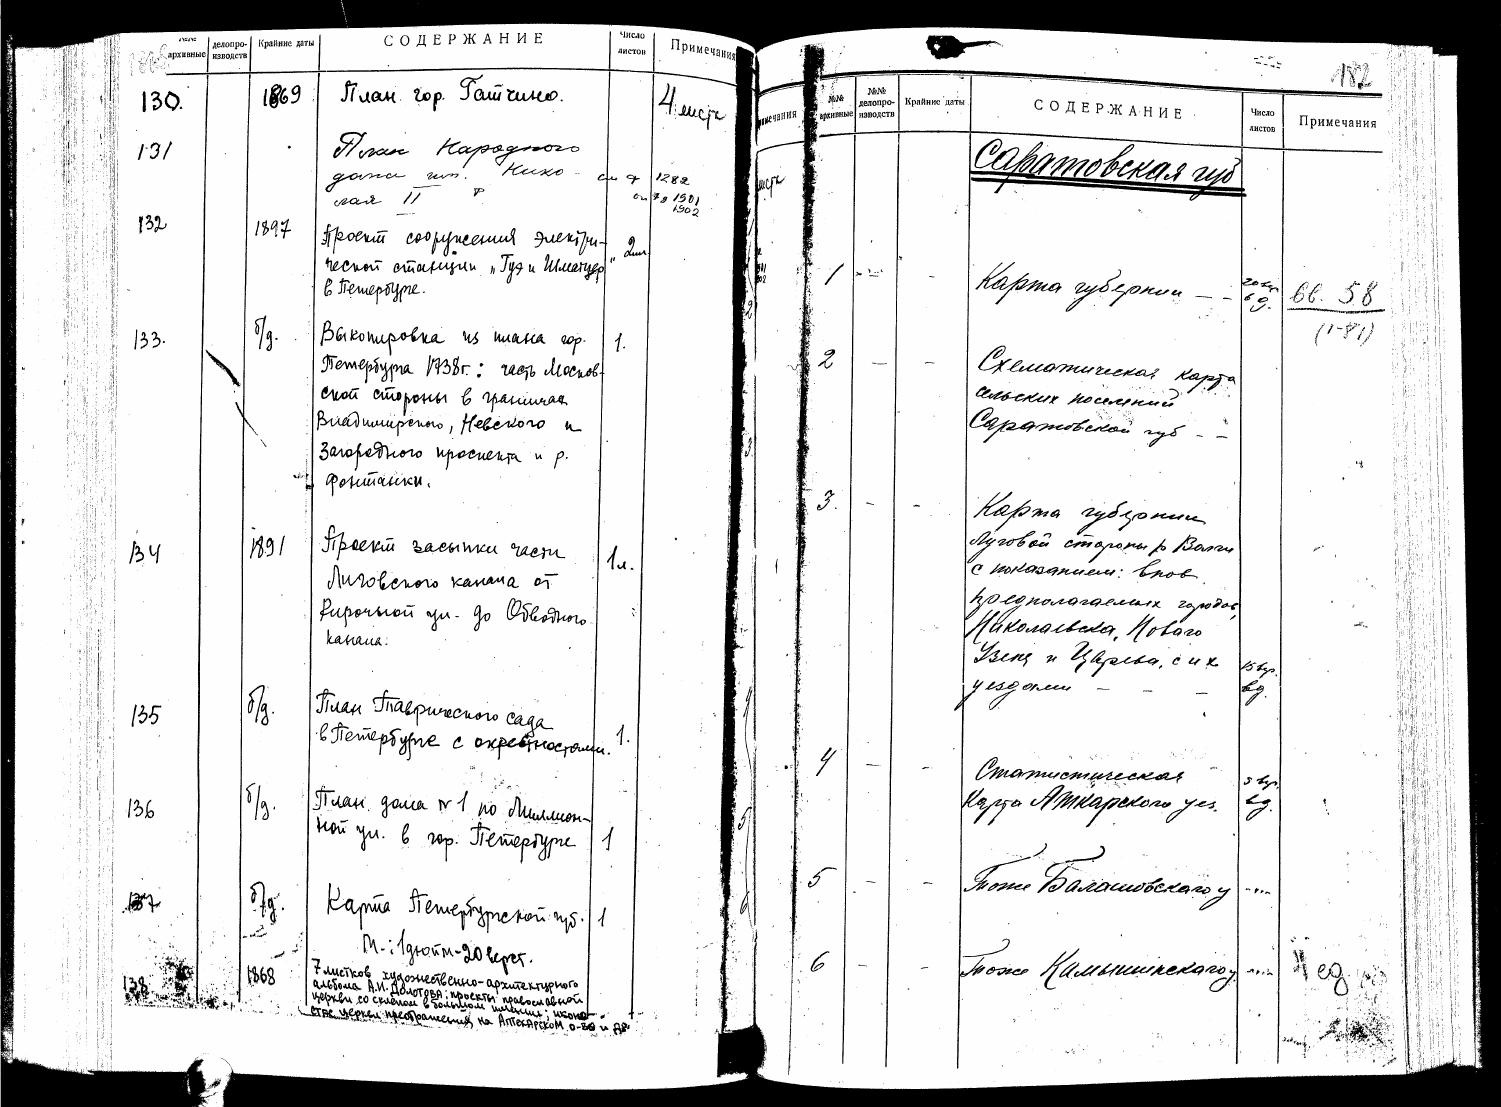 архивные
делопро-
изводств
Крайние даты
СОДЕРЖАНИЕ
Число
листов
Примечания
130. 1869 План гор. Гатчино. 4 листа
131 План Народного
дома им. Нико- 1282
лая II 1901
1902
132 1897 Проект сооружения электри-
ческой станции „Гуэ и Шматцер" 2
в Петербурге.
133. б/д. Выкопировка из плана гор. 1.
Петербурга 1738г.: часть Москов-
ской стороны в границах
Владимирского, Невского и
Загородного проспекта и р.
Фонтанки.
134 1891 Проект засыпки части 1л.
Лиговского канала от
Кирочной ул. до Обводного
канала.
135 б/д. План Таврического сада
в Петербурге с окрестностями. 1.
136 б/д. План дома № 1 по Миллион-
ной ул. в гор. Петербурге 1
137 б/д. Карта Петербургской губ. 1
М.: 1 дюйм - 20 верст.
138 1868 7 листков художественно-архитектурного
альбома А.И. Долотова: проекты православной
церкви со склепом в большом имении; иконо-
стас церкви преображения на Аптекарском о-ве и др.
182
№№
архивные
№№
делопро-
изводств
Крайние даты
СОДЕРЖАНИЕ
Число
листов
Примечания
Саратовская губ
1 - - Карта губернии - - 20 вер.
в д. 58
(1-81)
2 - - Схематическая карта
сельских поселений
Саратовской губ - -
3. - - Карта губернии
Луговой стороны р Волги
с показанием: внов
предполагаемых городов,
Николаевска, Новаго
Узеня и Царева, с их 15 вер.
уездами - - - в д.
4 - - Статистическая 5 вер.
Карта Аткарского уез. в д.
5 - - Тоже Балашовскаго у -„-
6 - - Тоже Камышинскаго у. -„- ед.